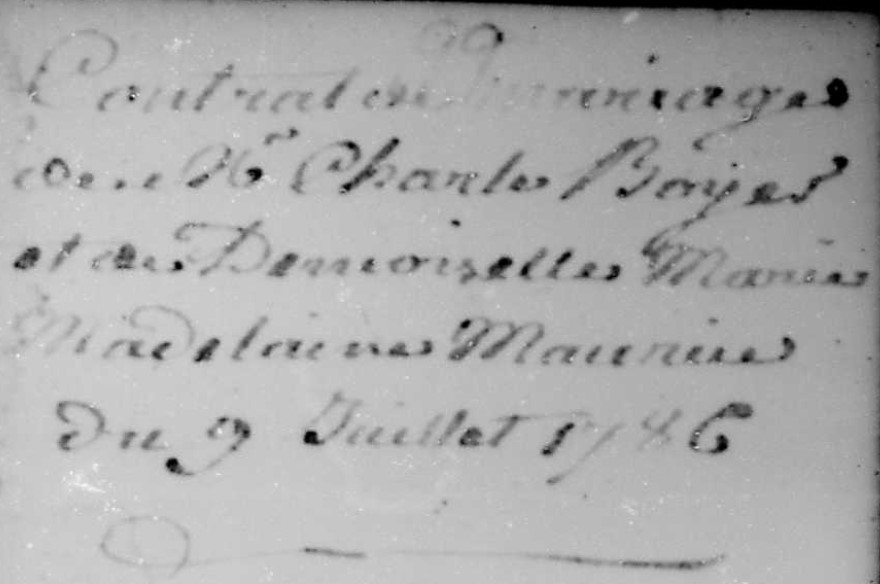 Contrat de mariage
de Sr Charles Boyer
et de Demoiselle Marie
Madelaine Maurice
du 9 Juillet 1786